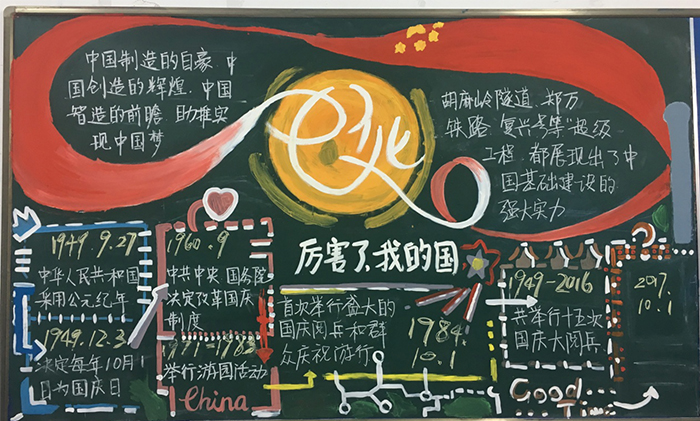 中国制造的自豪.中
国创造的辉煌.中国
智造的前瞻 助推实
现中国梦
胡麻岭隧道.郑万
铁路"复兴号等"超级
工程.都展现出了中
国基础建设的
强大实力
厉害了我的国
1949.9.27
中华人民共和国
采用公元纪年
1949.12.3
决定每年10月1
日为国庆日
1960.9
中共中央 国务院
决定改革国庆
制度
1971-1983
举行游园活动
China
首次举行盛大的
国庆阅兵和群
众庆祝游行
1984.
10.1
1949-2016
共举行十五次
国庆大阅兵
2017.
10.1
Good
Time